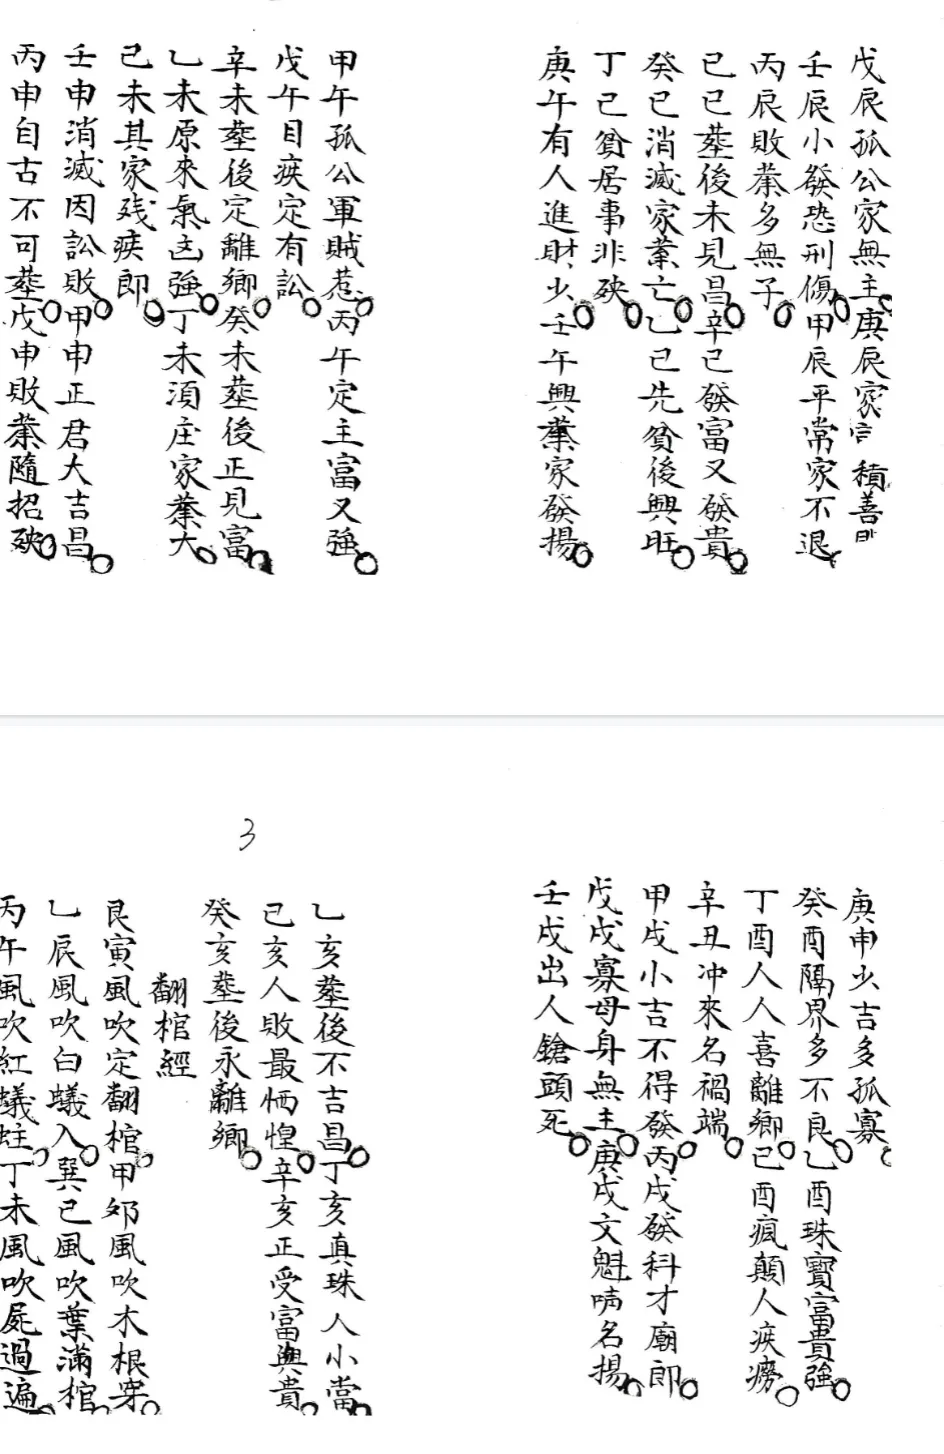 戊辰孤公家無主庚辰家積善
壬辰小發恐刑傷甲辰平常家不退
丙辰敗業多無子
己巳塟後未見昌辛巳發富又發貴
癸巳消滅家業亡乙巳先貧後興旺
丁巳貧居事非殃
庚午有人進財少壬午興業家發揚
甲午孤公軍賊惹丙午定主富又強
戊午目疾定有訟
辛未塟後定離鄉癸未塟後正見富
乙未原來氣凶強丁未須庄家業大
己未其家残疾郎
壬申消滅因訟敗甲申正君大吉昌
丙申自古不可塟戊申敗業隨招殃
庚申少吉多孤寡
癸酉隔界多不良乙酉珠寶富貴強
丁酉人人喜離鄉己酉瘋顛人疾癆
辛丑冲來名禍端
甲戌小吉不得發丙戌發科才廟郎
戊戌寡母身無主庚戌文魁名揚
壬戌出人鎗頭死
3
乙亥塟後不吉昌丁亥真珠人小當
己亥人敗最恓惶辛亥正受富與貴
癸亥塟後永離鄉
翻棺經
艮寅風吹定翻棺甲卯風吹木根穿
乙辰風吹白蟻入巽巳風吹葉滿棺
丙午風吹紅蟻蛀丁未風吹屍過遍